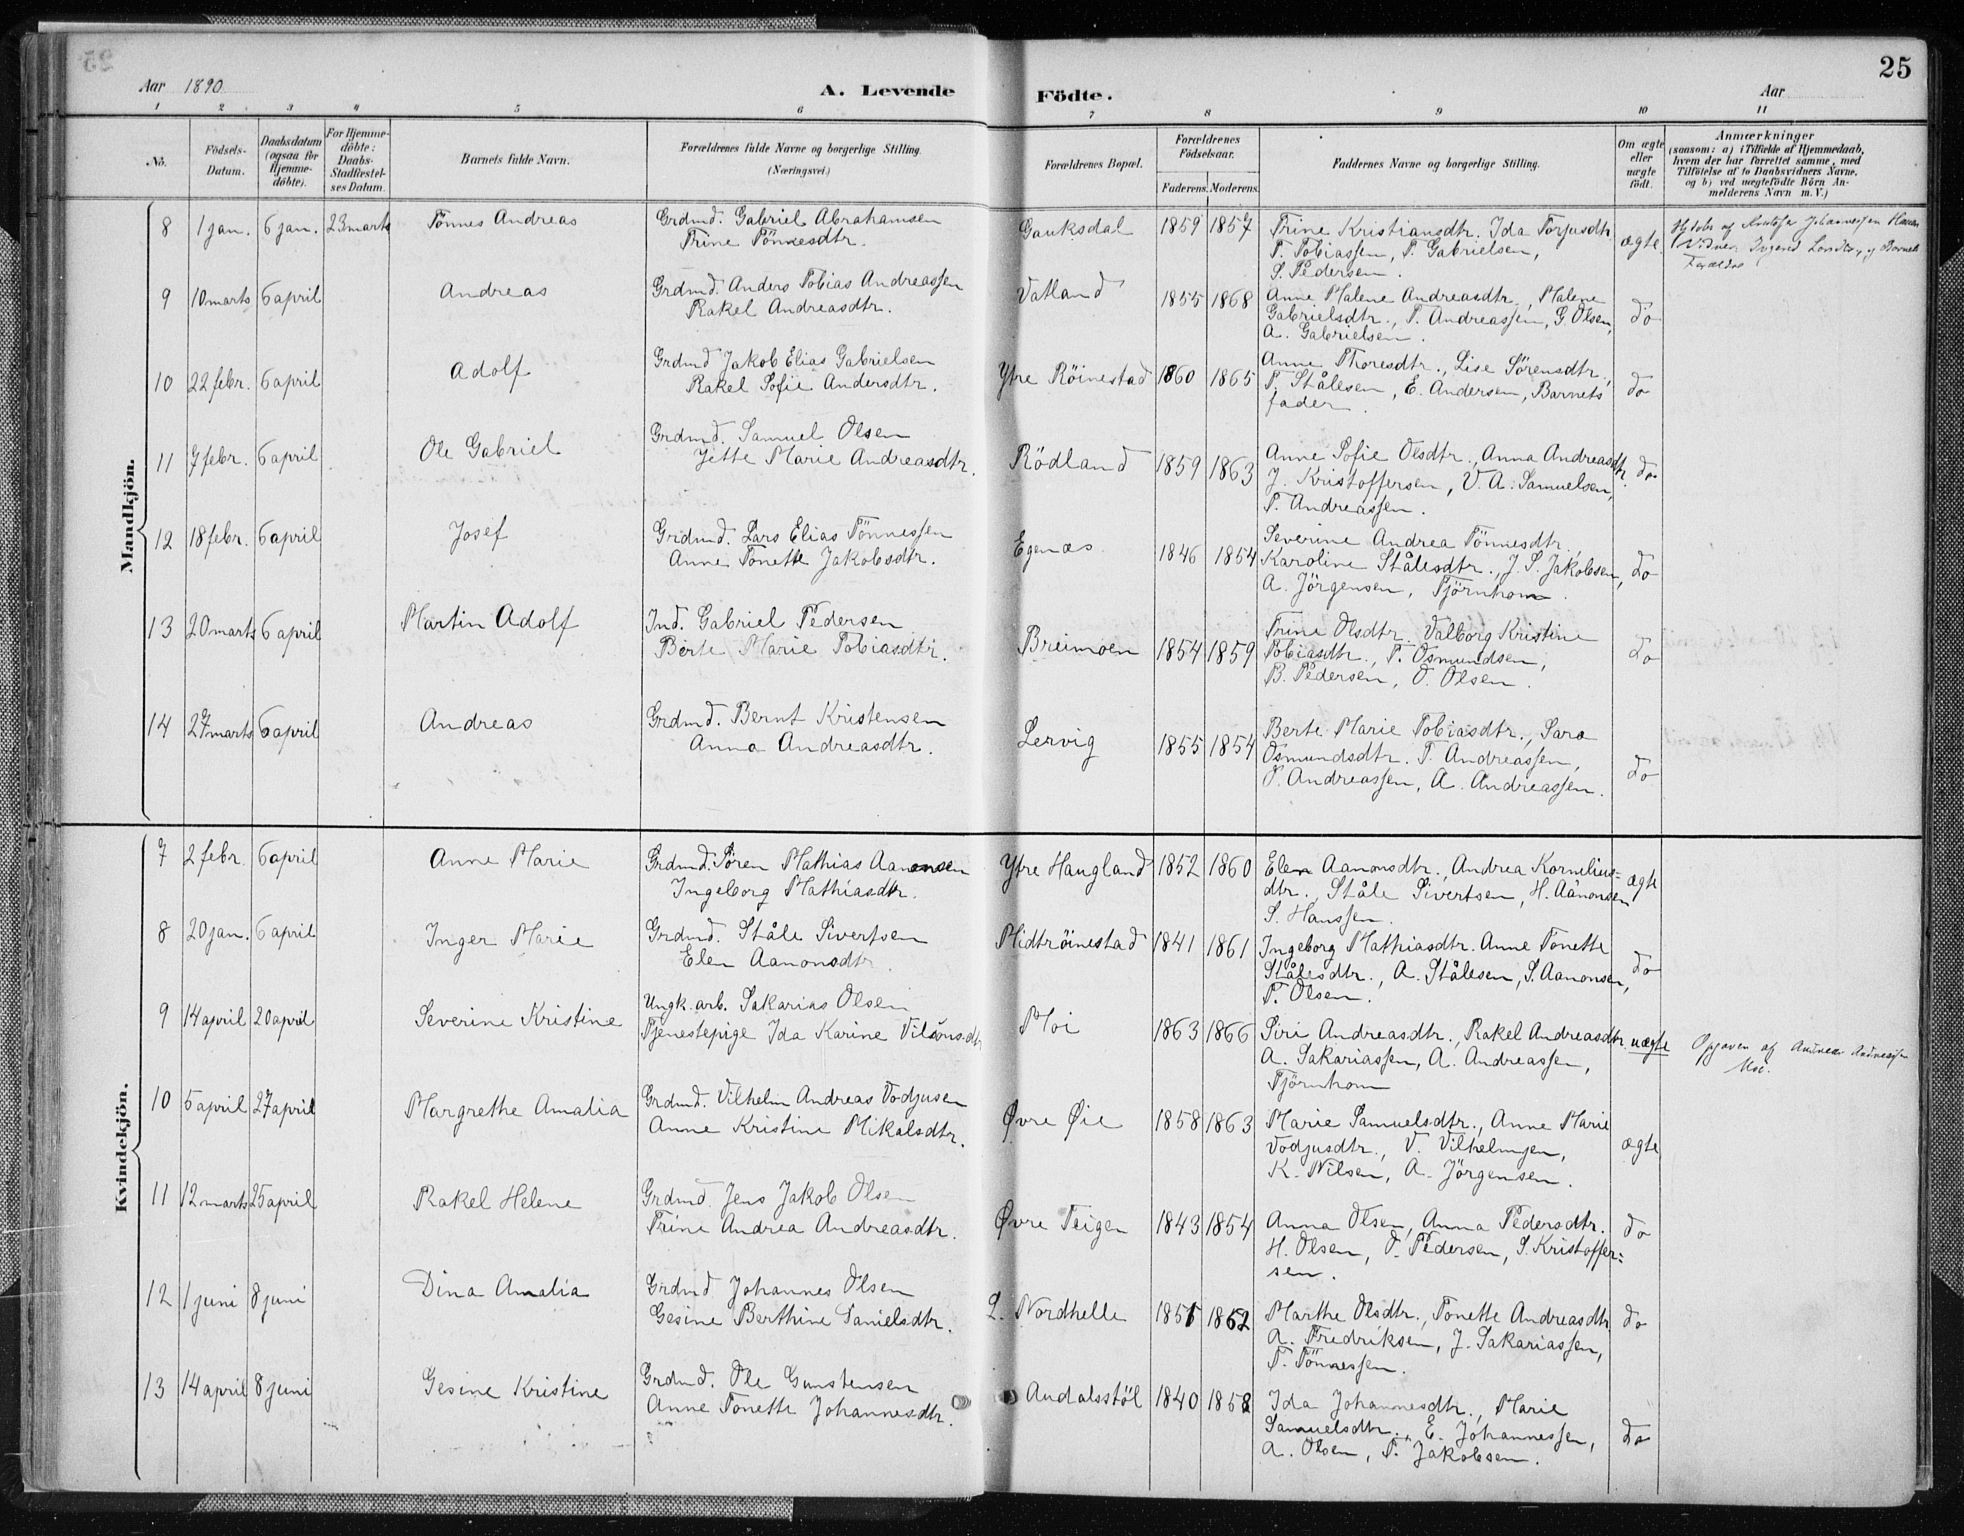 25
Aar 1890
A. Levende Födte.
Aar
1 2 3 4 5 6 7 8 9 10 11
No.
Födsels-Datum.
Daabsdatum (ogsaa for Hjemme-döbte).
For Hjemme-döbte: Daabs-Stadfæstel-ses Datum.
Barnets fulde Navn.
Forældrenes fulde Navne og borgerlige Stilling. (Næringsvei.)
Forældrenes Bopæl.
Forældrenes Födselsaar.
Faderens. Moderens.
Faddernes Navne og borgerlige Stilling.
Om ægte eller uægte födt.
Anmærkninger
(saasom: a) i Tilfælde af Hjemmedaab,
hvem der har forrettet samme, med
Tilföielse af to Daabsvidners Navne,
og b) ved uægtefödte Börn An-
melderens Navn m. V.)
Mandkjön.
8 1 jan. 6 jan. 23 marts Tönnes Andreas Grdmd. Gabriel Abrahamsen Gauksdal 1859 1857 Trine Kristiansdtr. Ida Torjusdtr ægte
Trine Tönnesdtr. T. Tobiassen, T. Gabrielsen,
S. Pedersen.
9 10 marts 6 april Andreas Grdmd. Anders Tobias Andreassen Vatland 1855 1868 Anne Malene Andreasdtr., Malene do
Rakel Andreasdtr. Gabrielsdtr., T. Andreassen, G. Olsen,
A. Gabrielsen.
10 22 febr. 6 april Adolf Grdmd Jakob Elias Gabrielsen Ytre Röinestad 1860 1865 Anne Thoresdtr., Lise Sörensdtr, do
Rakel Sofie Andersdtr. T. Stålesen, E. Andersen, Barnets
fader.
11 7 febr. 6 april Ole Gabriel Grdmd. Samuel Olsen Rödland 1859 1863 Anne Sofie Olsdtr., Anna Andreasdtr. do
Jette Marie Andreasdtr. J. Kristoffersen, V. A. Samuelsen,
T. Andreassen.
12 18 febr. 6 april Josef Grdmd. Lars Elias Tönnessen Egenæs 1846 1854 Severine Andrea Tönnesdtr., do
Anne Tonette Jakobsdtr. Karoline Stålesdtr., J. S. Jakobsen,
A. Jörgensen, Tjörnhom.
13 20 marts 6 april Martin Adolf Ind. Gabriel Pedersen Breimoen 1854 1859 Trine Olsdtr. Valborg Kristine do
Berte Marie Tobiasdtr. Tobiasdtr., T. Osmundsen,
B. Pedersen, O. Olsen.
14 27 marts 6 april Andreas Grdmd. Bernt Kristensen Lervig 1855 1854 Berte Marie Tobiasdtr., Sara do
Anna Andreasdtr. Osmundsdtr. T. Andreassen,
P. Andreassen, A. Andreassen.
Kvindekjön.
7 2 febr. 6 april Anne Marie Grdmd. Sören Mathias Aanonsen Ytre Haugland 1852 1860 Elen Aanonsdtr., Andrea Kornelius- ægte
Ingeborg Mathiasdtr. dtr., Ståle Sivertsen, H. Aanonsen
S. Hanssen.
8 20 jan. 6 april Inger Marie Grdmd. Ståle Sivertsen Midtröinestad 1841 1861 Ingeborg Mathiasdtr. Anne Tonette do
Elen Aanonsdtr. Stålesdtr., A. Stålesen, S. Aanonsen,
T. Olsen.
9 14 april 20 april Severine Kristine Ungk. arb. Sakarias Olsen Moi 1863 1866 Siri Andreasdtr., Rakel Andreasdtr. uægte Opgaven af Andreas Andreassen
Tjenestepige Ida Karine Vilsonsdtr A. Sakariassen, A. Andreassen, Moi.
Tjörnhom
10 5 april 27 april Margrethe Amalia Grdmd. Vilhelm Andreas Vodjusen Øvre Øie 1858 1863 Marie Samuelsdtr., Anne Marie ægte
Anne Kristine Mikalsdtr. Vodjusdtr., V. Vilhelmsen,
K. Nilsen, A. Jörgensen.
11 12 marts 25 april Rakel Helene Grdmd. Jens Jakob Olsen Øvre Teigen 1843 1854 Anna Olsen, Anna Pedersdtr. do
Trine Andrea Andreasdtr. H. Olsen, O. Pedersen, S. Kristoffer-
sen.
12 1 juni 8 juni Dina Amalia Grdmd Johannes Olsen L. Nordhelle 1851 1862 Marthe Olsdtr., Tonette Andreasdtr do
Gesine Berthine Danielsdtr. A. Fredriksen, J. Sakariassen,
T. Tönnessen.
13 14 april 8 juni Gesine Kristine Grdmd. Ole Gunstensen Aadalsstöl 1840 1858 Ida Johannesdtr., Marie do
Anne Tonette Johannesdtr. Samuelsdtr., E. Johannessen,
A. Olsen, T. Jakobsen.